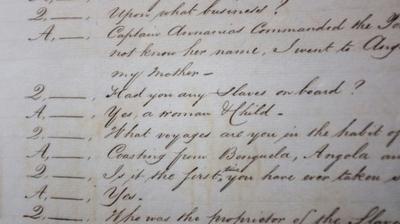 2,——, Upon what business?
A,——, Captain Annanias Commanded the
not know her name, I went to
my Mother—
2,——, Had you any Slaves on board?
A,——, Yes, a woman & Child—
2,——, What voyages are you in the habit of
A,——, Coasting from Benguela, Angola
2,——, Is it the first, time you have ever taken
A,——, Yes—
2,——, Who was the proprietor of the